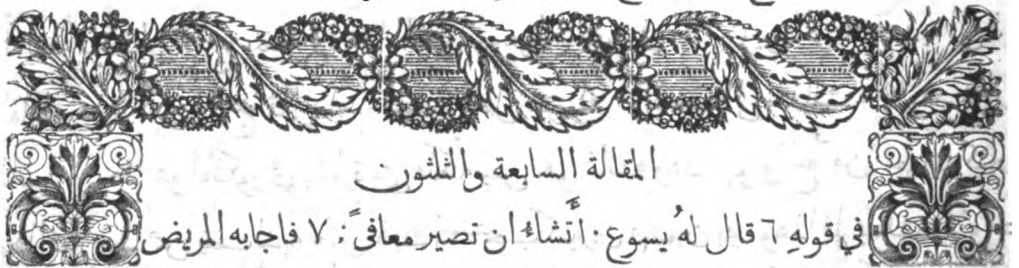 المقالة السابعة والثلثون
في قولهِ ٦ قال لهُ يسوع · أَتشاءُ ان تصير معافىً : ٧ فاجابه المريض